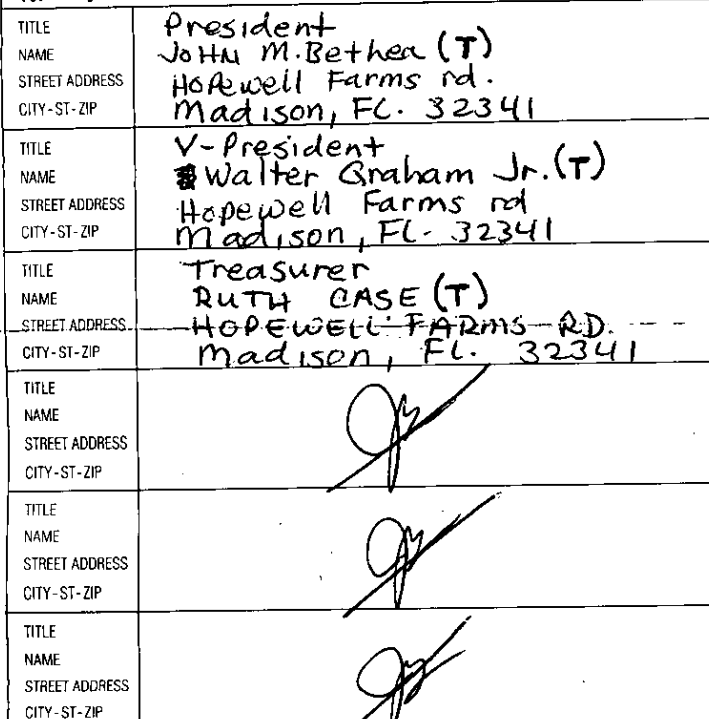 TITLE President
NAME John M. Bethea (T)
STREET ADDRESS Hopewell Farms rd.
CITY-ST-ZIP Madison, FL. 32341
TITLE V-President
NAME Walter Graham Jr. (T)
STREET ADDRESS Hopewell Farms rd
CITY-ST-ZIP Madison, FL. 32341
TITLE Treasurer
NAME RUTH CASE (T)
STREET ADDRESS HOPEWELL FARMS RD.
CITY-ST-ZIP Madison, FL. 32341
TITLE
NAME
STREET ADDRESS
CITY-ST-ZIP
TITLE
NAME
STREET ADDRESS
CITY-ST-ZIP
TITLE
NAME
STREET ADDRESS
CITY-ST-ZIP